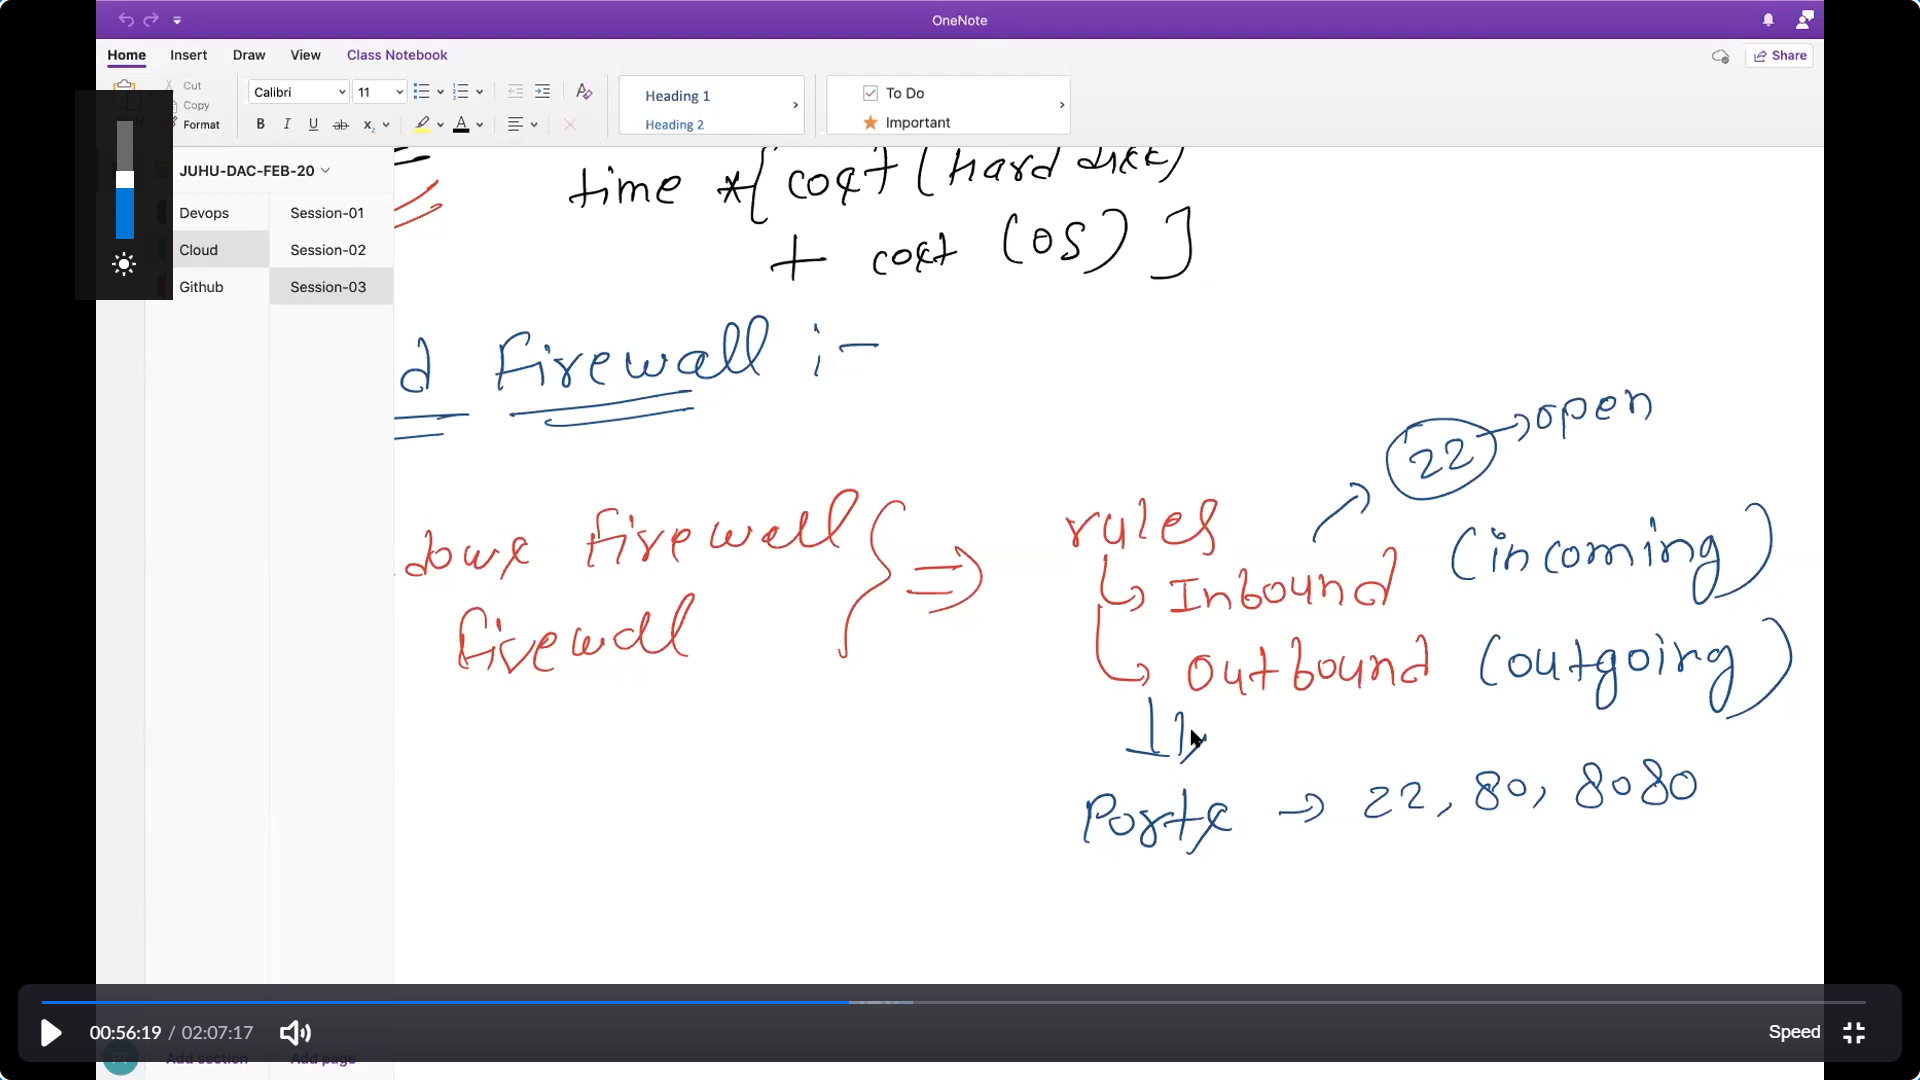 OneNote
Home Insert Draw View Class Notebook
Share
Cut
Copy
Format
Calibri 11
B I U ab x₂ A
Heading 1
Heading 2
To Do
Important
JUHU-DAC-FEB-20
Devops
Cloud
Github
Session-01
Session-02
Session-03
time *[ cost (hard disk)
+ cost (OS) ]
d firewall :-
22 → open
dows firewall
firewall
⇒ rules
Inbound (incoming)
Outbound (outgoing)
Ports → 22, 80, 8080
00:56:19 / 02:07:17
Speed
PT
Add section Add page